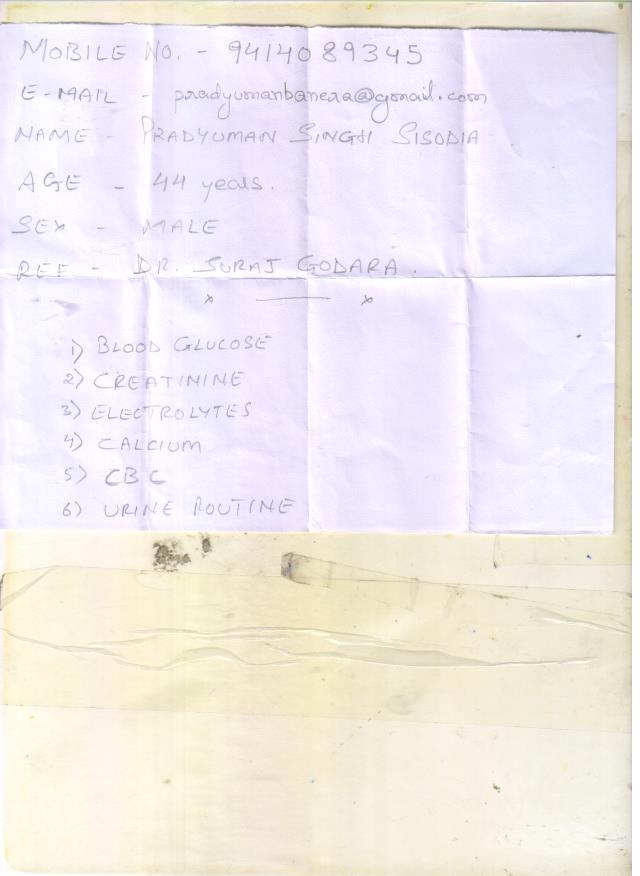 MOBILE NO. - 9414089345
E-MAIL - pradyumanbanera@gmail.com
NAME - PRADYUMAN SINGH SISODIA
AGE - 44 years.
SEX - MALE
REF - DR. SURAJ GODARA.
x —— x
1) BLOOD GLUCOSE
2) CREATININE
3) ELECTROLYTES
4) CALCIUM
5) CBC
6) URINE ROUTINE